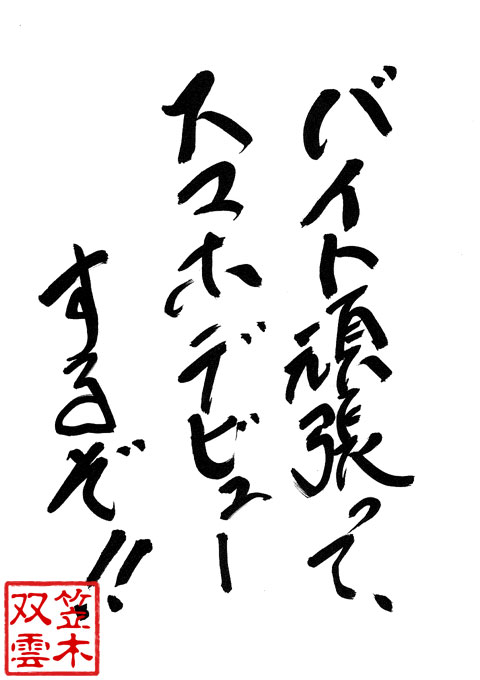 バイト頑張って、
スマホデビュー
するぞ!!
笠木
双雲